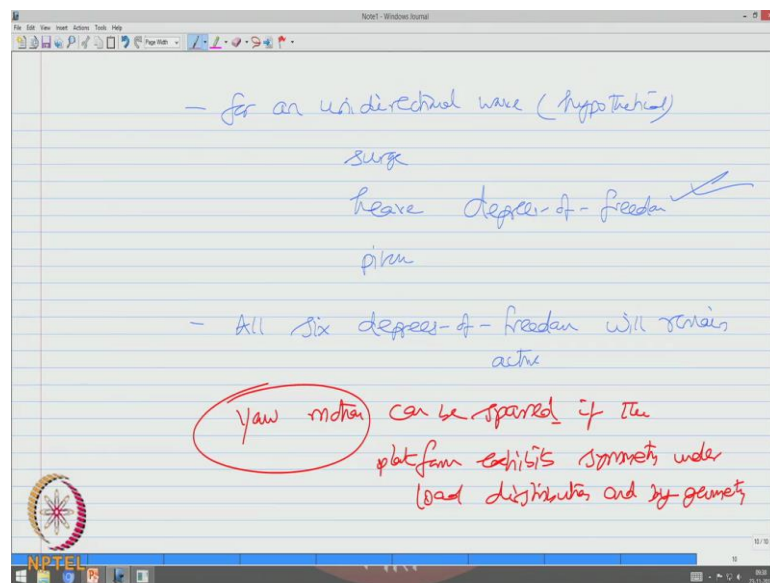 Note1 - Windows Journal
File Edit View Insert Actions Tools Help
Page Width
- for an unidirectional wave (hypothetical)
surge
heave degree-of-freedom
- All six degrees-of-freedom will remain
active
Yaw motion can be spared if the
platform exhibits symmetry under
load distribution and by geometry
10/10
10
NPTEL